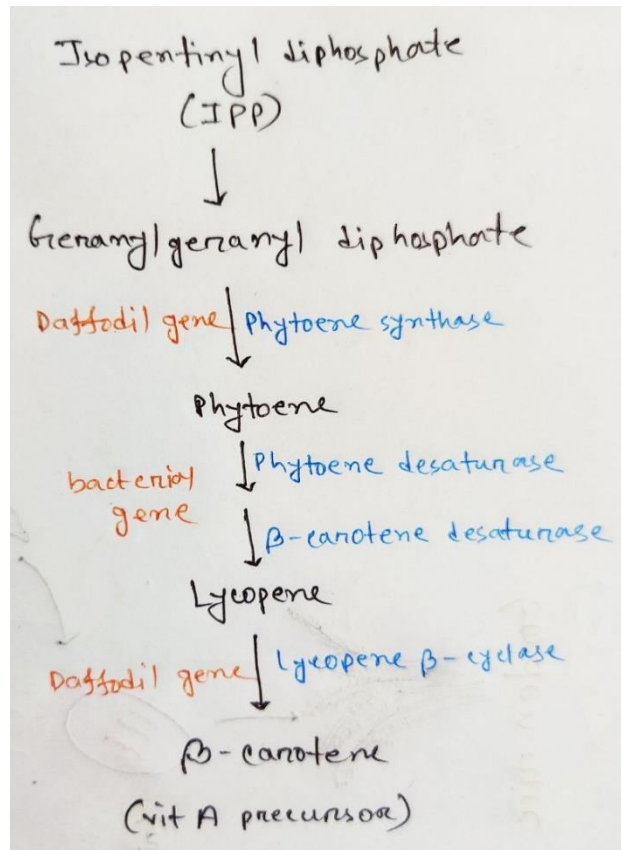 Isopentinyl diphosphate
(IPP)
Geranylgeranyl diphosphate
Daffodil gene Phytoene synthase
Phytoene
Phytoene desaturase
bacterial
gene
β-carotene desaturase
Lycopene
Daffodil gene Lycopene β-cyclase
β-carotene
(vit A precursor)